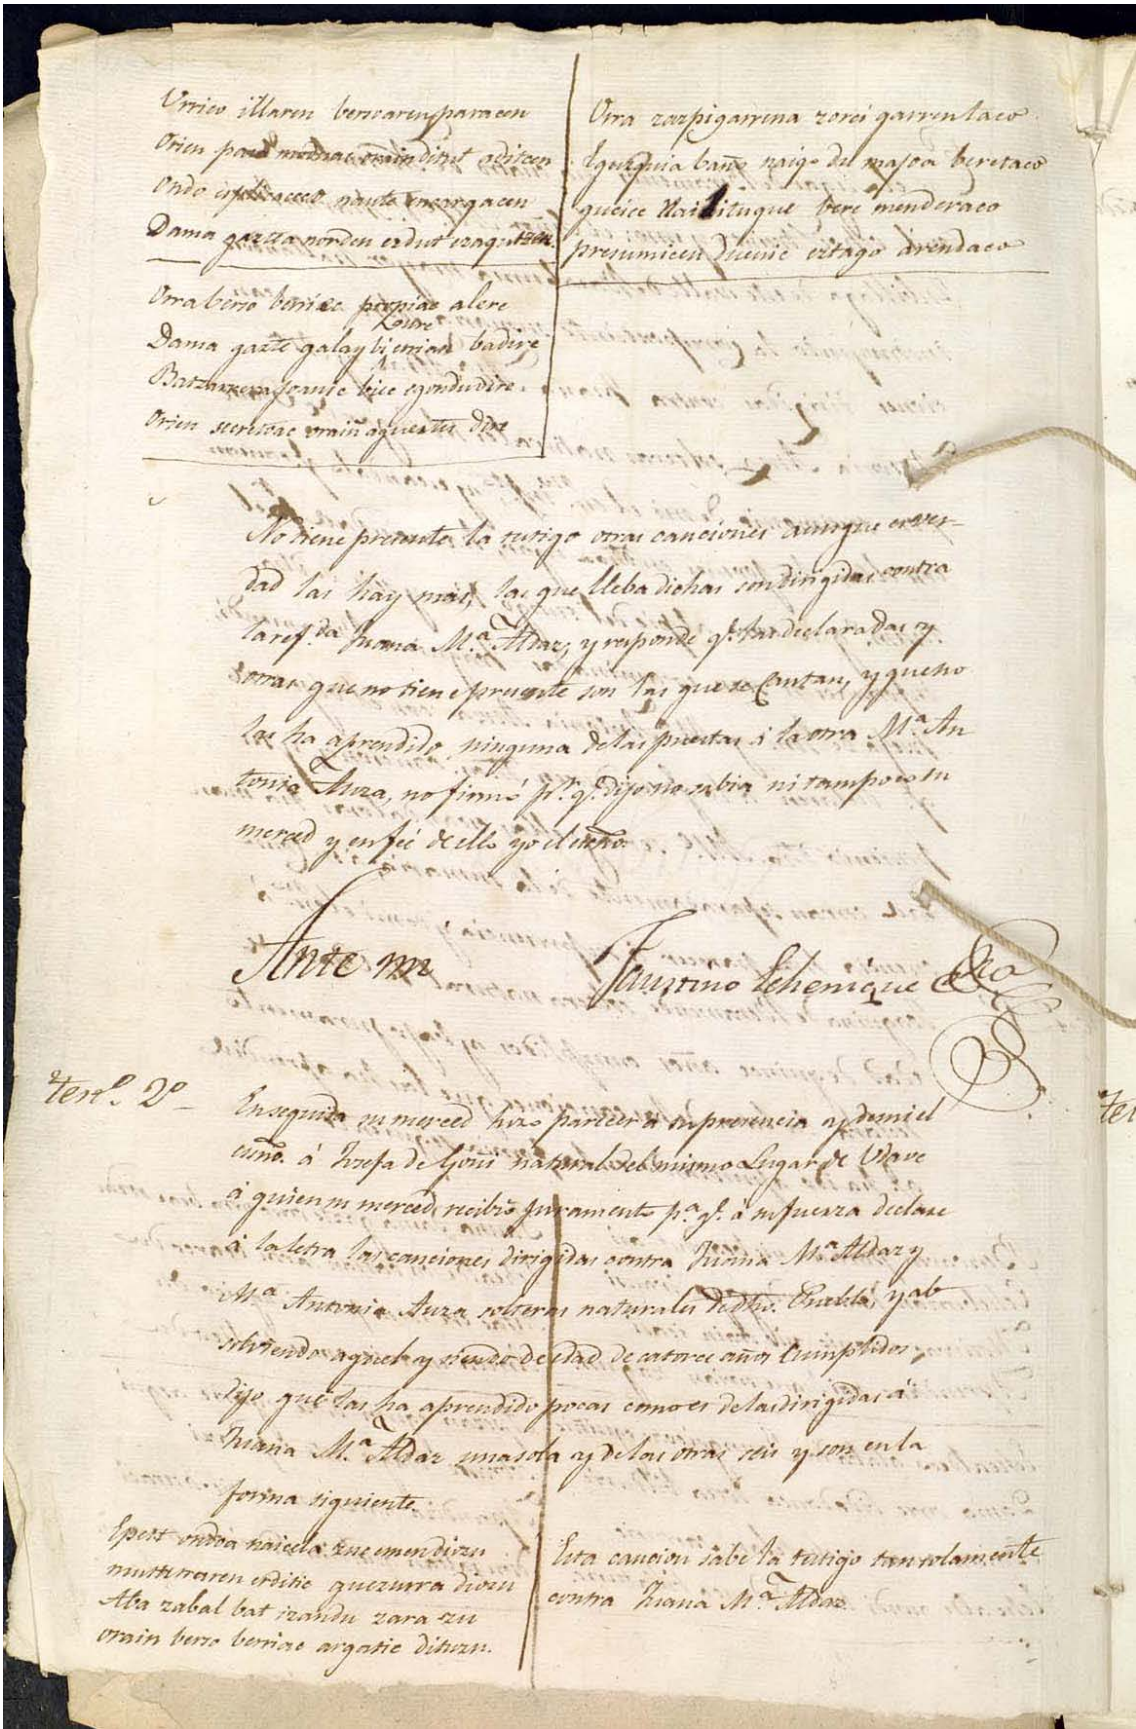 Urrico illaren bersoaren paraceen
Orien
Ondo esplicaceco naute encargacen
Dama gazta norden ezdut ezagutzen
Orra berso berriac propiac alere
Dama gazte galay bi zure errian badire
Batzarrera joanic bice egondudire
Orien secretoac orain aguertu dire
Orra zazpigarrena zorci garrentaco
Eguzquia baño naigo du majoa beretaco
queice Nai bituque bere menderaco
presumicen duenic eztago arendaco
No tiene presente la testigo otras canciones aunque es ver-
dad las hay mas, las que lleba dichas son dirigidas contra
la ref.da Juana M.a Aldaz, y responde q.e las declaradas y
otras que no tiene presente son las que se Cantan, y que no
las ha aprendido ninguna de las puestas á la otra M.a An
tonia Auza, no firmó p.r q.e dijo no sabia ni tampoco su
merced y en feé de ello yo el esno.
Ante mi Faustino Echenique Esno
tert.o 2.o
En seguida su merced hizo parecer á su presencia y de mi el
esno. á Josefa de Goñi natural del mismo Lugar de Udave
á quien su merced recibió Juramento p.a q.e á su fuerza declare
á la letra las canciones dirigidas contra Juana M.a Aldaz y
M.a Antonia Auza solteras naturales de dho. Pueblo, y ab
solviendo aquel y siendo de edad de catorce años Cumplidos,
dijo que las ha aprendido pocas como es de las dirigidas á
Juana M.a Aldaz una sola y de las otras seis y son en la
forma siguiente.
Epert ondoa naicela zuc emen diozu
muttirraren erditic guezurra diozu
Aba zabal bat izandu zara zu
orain berso berriac argatic dituzu.
Esta cancion sabe la testigo tan solamente
contra Juana M.a Aldaz